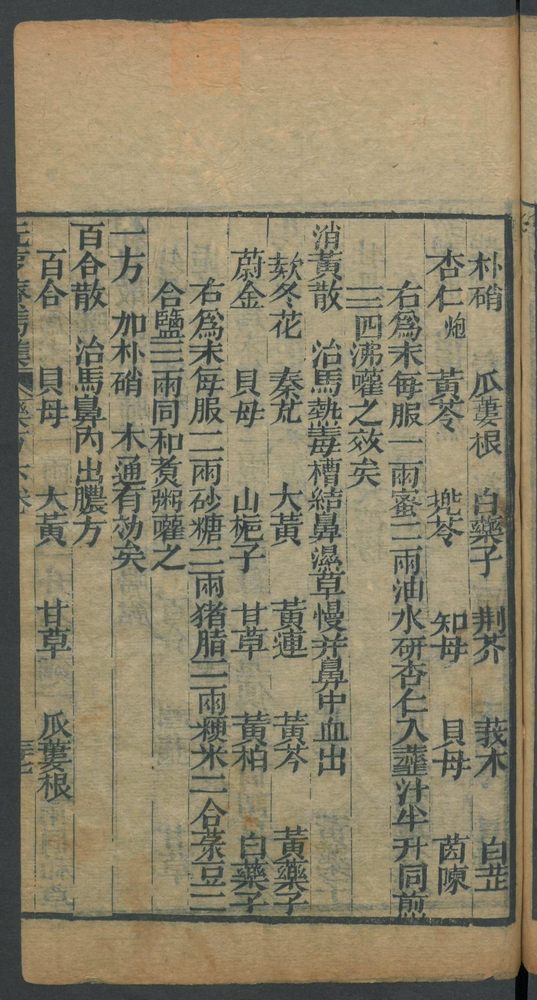 朴硝 瓜蔞根 白藥子 荆芥 莪朮 白芷
杏仁炮 黃芩 兠苓 知母 貝母 茵陳
右爲末每服一兩蜜二兩油水研杏仁入虀汁半升同煎
三四沸嚾之效矣
消黃散 治馬𤍠毒槽結鼻濕草慢并鼻中血出
欵冬花 秦艽 大黃 黃連 黃芩 黃藥子
蔚金 貝母 山梔子 甘草 黃栢 白藥子
右爲末每服二兩砂糖二兩猪脂二兩粳米二合菉豆二
合鹽三兩同和煑粥嚾之
一方 加朴硝 木通有効矣
百合散 治馬鼻內出膿方
百合 貝母 大黃 甘草 瓜蔞根